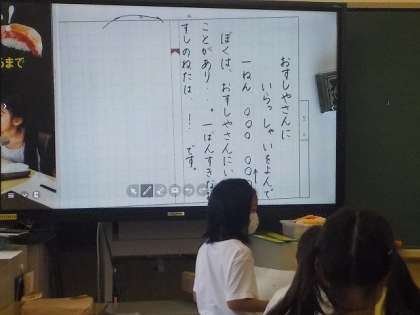 おすしやさんに
いらっしゃいをよんで
一ねん　○○○　○○
ぼくは、おすしやさんにい
ことがあり・・・。一ばんすきな
すしのねたは、・！・です。
まで